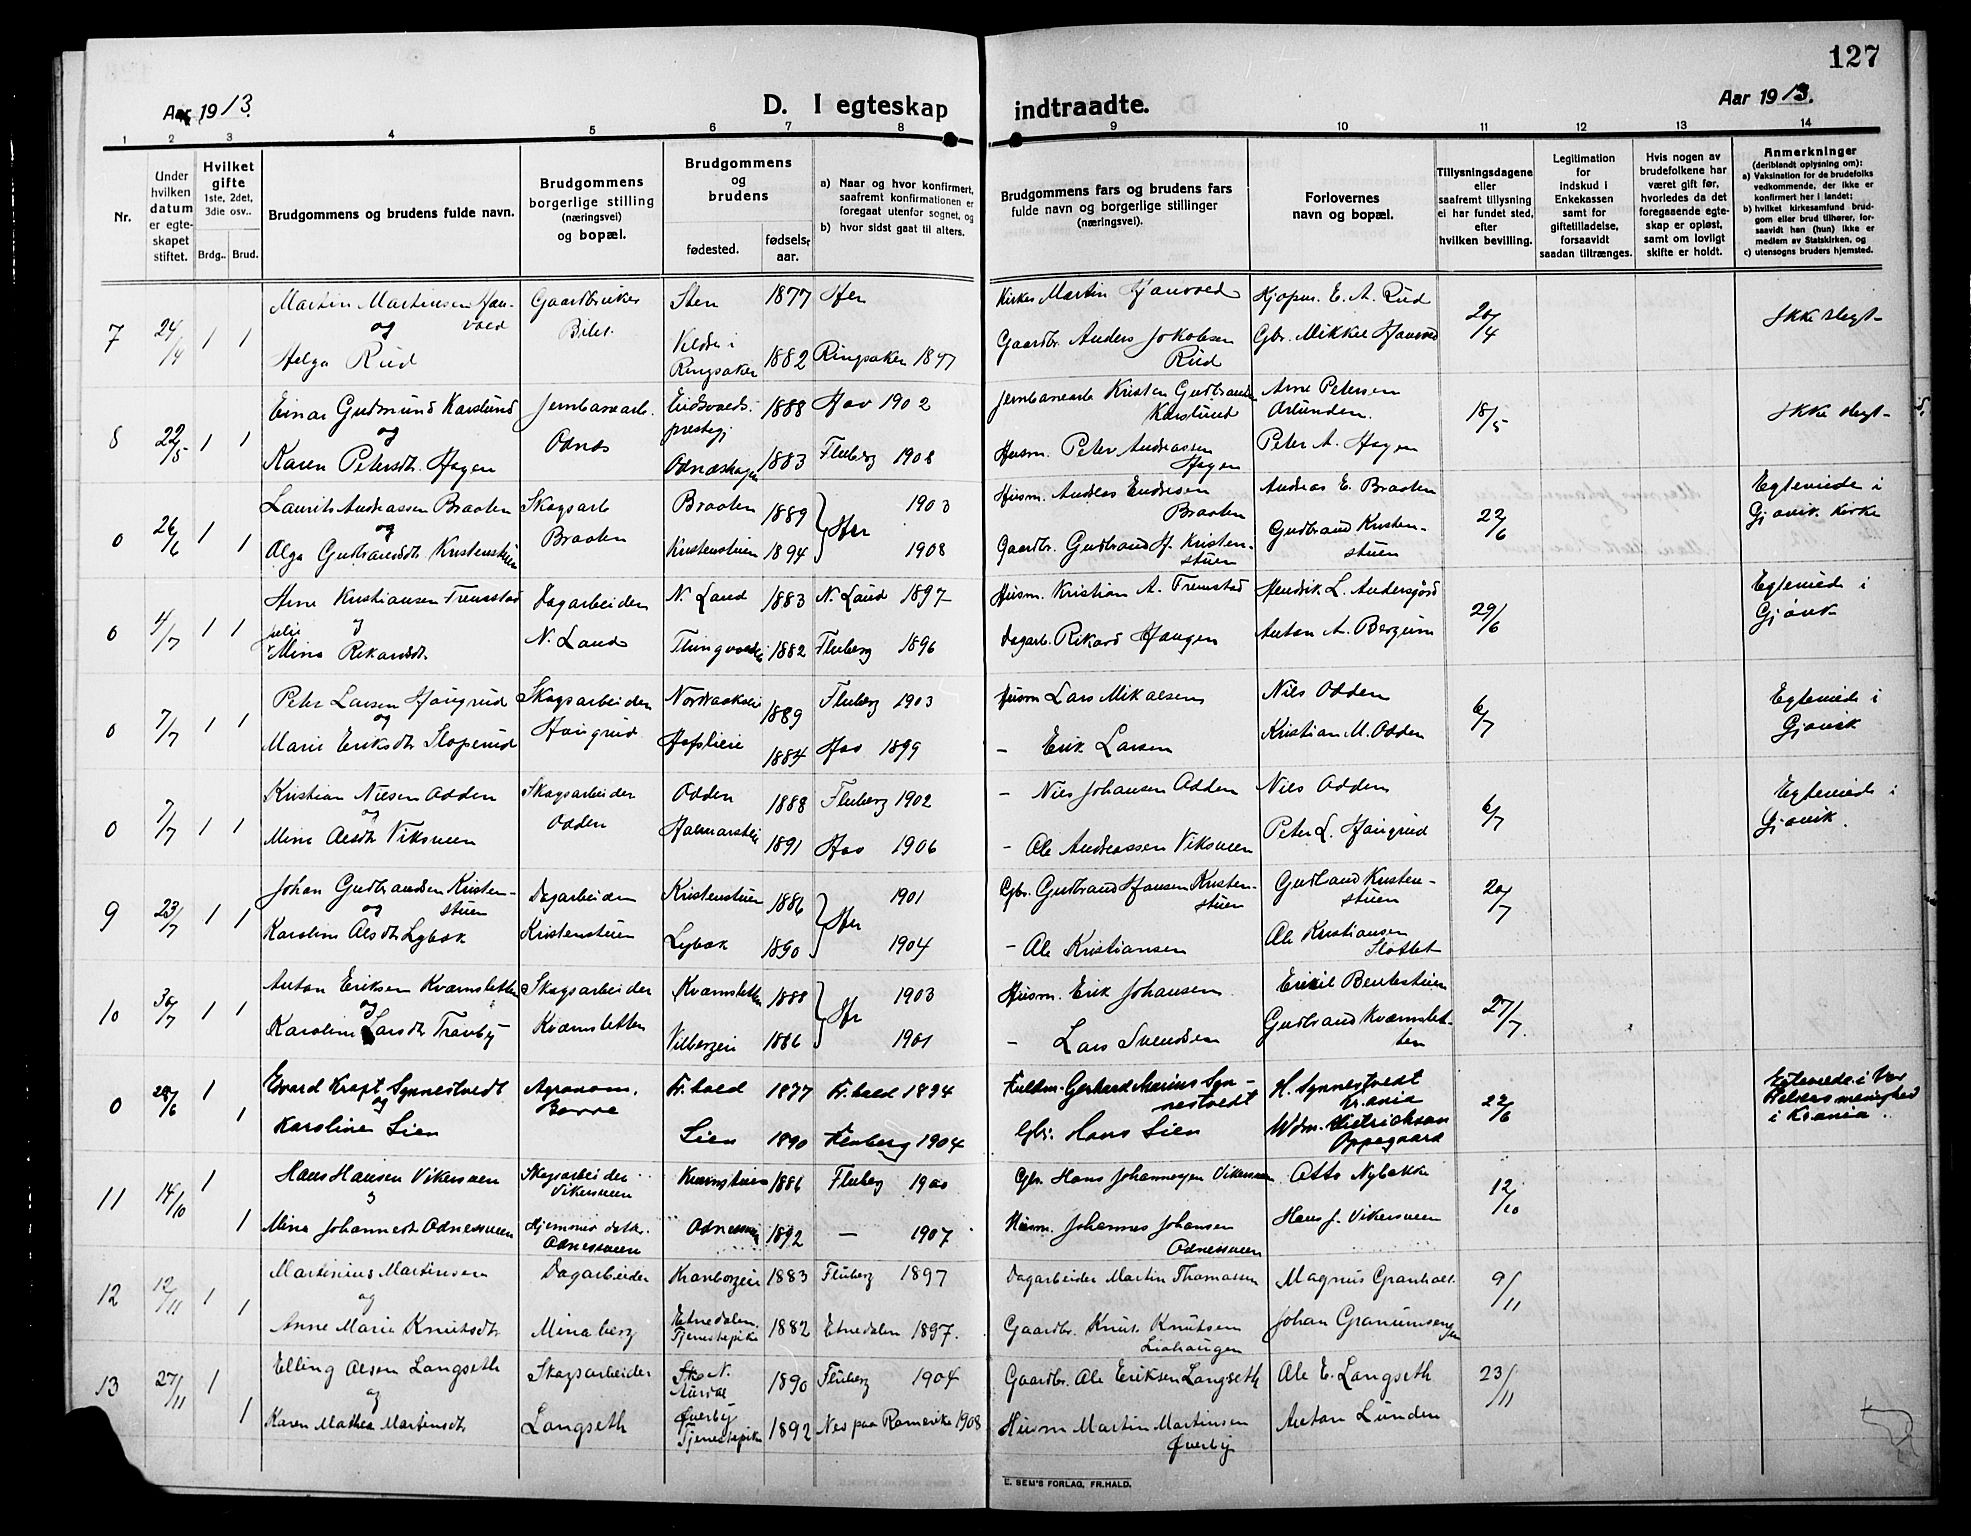 127
Aar 1913.
D. I egteskap
indtraadte.
Aar 1913.
1 2 3 4 5 6 7 8 9 10 11 12 13 14
Nr.
Under hvilken datum er egteskapet stiftet.
Hvilket gifte
1ste, 2det, 3die osv..
Brdg.. Brud.
Brudgommens og brudens fulde navn.
Brudgommens borgerlige stilling
(næringsvei)
og bopæl.
Brudgommens og brudens
fødested.
fødselsaar.
a) Naar og hvor konfirmert, saafremt konfirmationen er foregaat utenfor sognet, og
b) hvor sidst gaat til alters.
Brudgommens fars og brudens fars
fulde navn og borgerlige stillinger
(næringsvei).
Forlovernes
navn og bopæl.
Tillysningsdagene
eller
saafremt tillysning
ei har fundet sted,
efter
hvilken bevilling.
Legitimation
for
Indskud i
Enkekassen
samt for
giftetilladelse,
forsaavidt
saadan tiltrænges.
Hvis nogen av
brudefolkene har
været gift før,
hvorledes da det
foregaaende egteskap er opløst,
samt om lovligt
skifte er holdt.
Anmerkninger
(deriblandt oplysning om):
a) Vaksination for de brudefolks
vedkommende, der ikke er
konfirmert her i landet;
b) hvilket kirkesamfund brudgom eller brud tilhører, forsaavidt han (hun) ikke er
medlem av Statskirken, og
c) utensogns bruders hjemsted.
7 24/4 1 1 Martin Martinsen
og
Helga Rud
Gaardbruker
Sten 1877 Her
Veldre i Ringsaker 1882 Ringsaker 1897
Martin
Gaardbr. Anders Jokobsen Rud
Kjøpm. E. A. Rud
Gbr. Mikkel
20/4
Ikke slegt
8 22/5 1 1 Einar Gudmund Karslund
og
Karen Petersdt. Hagen
Jernbanearb.
Odnæs
Eidsvolds prestegj 1888 Hov 1902
1883 Fluberg 1908
Jernbanearb Kristen Gudbrandsen Karslund
Husm. Peter Andreassen Hagen
Arne Petersen
Peter A. Hagen
18/5
Ikke slegt
0 26/6 1 1 Laurits Andreassen Braaten
og
Olga Gudbrandsdt. Kristenstuen
Skogsarb
Braaten
Braaten 1889 Her 1903
Kristenstuen 1894 1908
Husm. Andreas Endresen Braaten
Gaardbr. Gudbrand H. Kristenstuen
Andreas E. Braaten
Gudbrand Kristenstuen
22/6
Egteviede i
Gjøvik kirke
0 4/7 1 1 Arne Kristiansen Fremstad
Julie Mina Rikardsdt.
Dagarbeider
N. Land
N. Land 1883 N. Land 1897
1882 Fluberg 1896
Husm. Kristian A. Fremstad
Dagarb. Rikard Haugen
Hendrik L. Andersjord
Anton A. Bergum
29/6
Egteviede i
Gjøvik
0 7/7 1 1 Peter Larsen Haugrud
og
Marie Eriksdt.
Skogsarbeider
Haugrud
1889 Fluberg 1903
1884 Hov 1899
Husm Lars Mikalsen
- Erik Larsen
Nils Odden
Kristian M. Odden
6/7
Egteviede i
Gjøvik
0 7/7 1 1 Kristian Nilsen Odden
og
Mina Olsdt. Viksveen
Skogsarbeider
Odden
Odden 1888 Fluberg 1902
1891 Hov 1906
- Nils Johansen Odden
- Ole Andreassen Viksveen
Nils Odden
Peter L. Haugrud
6/7
Egteviede i
Gjøvik.
9 23/7 1 1 Johan Gudbrandsen Kristenstuen
og
Karoline Olsdt. Lybæk
Dagarbeider
Kristenstuen
Kristenstuen 1886 Her 1901
Lybæk 1890 1904
Gbr. Gudbrand Hansen Kristenstuen
- Ole Kristiansen
Gudbrand Kristenstuen
Ole Kristiansen Slottet
20/7
10 30/7 1 1 Anton Eriksen Kvæmsletten
og
Karoline Larsdt.
Skogsarbeider
Kvæmsletten
Kvæmsletten 1888 Her 1903
1886 1901
Husm. Erik Johansen
- Lars Svendsen
Gudbrand Kvæmsletten
27/7
0 28/6 1 1 Edvard Kraft Synnestvedt
og
Karoline Lien
Agronom.
Borre
Fr.hald 1877 Fr.hald 1894
Lien 1890 Fluberg 1904
Fuldm. Gerhard Marius Synnestvedt
Gbr. Hans Lien
H. Synnestvedt
Kr.ania
Wdm. Dietrichson
Oppegaard
22/6
Egteviede i Vor
Frelsers menighed
i Kr.ania.
11 14/10 1 1 Hans Hansen Vikersveen
og
Mina Johannesdt Odnesveen
Skogsarbeider
Vikersveen
Hjemmev. datter
Odnesveen
1886 Fluberg 1900
1892 - 1907
Gbr. Hans Johannesen Vikersveen
Husm. Johannes Johansen Odnesveen
Otto Nybakke
Hans J. Vikersveen
12/10
12 12/11 1 1 Martinius Martinsen
og
Anne Marie Knutsdt.
Dagarbeider
Minaberg
1883 Fluberg 1897
Etnedalen. Tjenestepike 1882 Etnedalen 1897.
Dagarbeider Martin Thomassen
Gaardbr. Knut Knutsen Liahaugen
Magnus Granholt
Johan
9/11
13 27/11 1 1 Elling Olsen Langseth
og
Karen Mathea Martinsdt.
Skogsarbeider
Langseth
N. Aurdal 1890 Fluberg 1904
Øverby Tjenestepike 1892 Nes paa Romerike 1908
Gaardbr. Ole Eriksen Langseth
Husm Martin Martinsen Øverby
Ole E. Langseth
Anton Lunden
23/11
E. SEM'S FORLAG, FR.HALD.